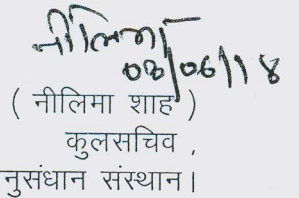 नीलिमा
03/06/14
( नीलिमा शाह )
कुलसचिव ,
नुसंधान संस्थान।